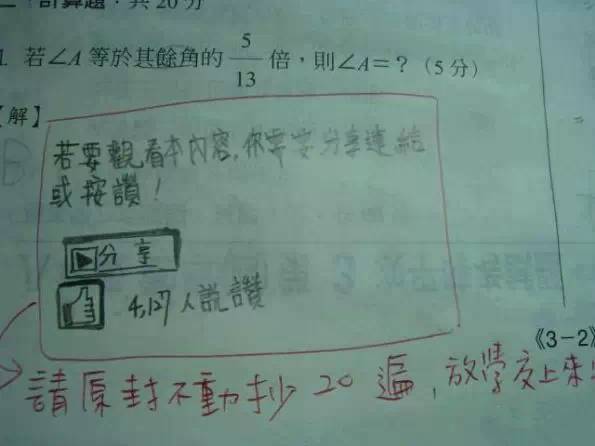 二、計算題：共20分
1. 若∠A等於其餘角的 5/13 倍，則∠A=？（5分）
【解】
若要觀看本內容，你需要分享連結
或按讚！
分享
4,127人說讚
《3-2》
請原封不動抄20遍，放學交上來